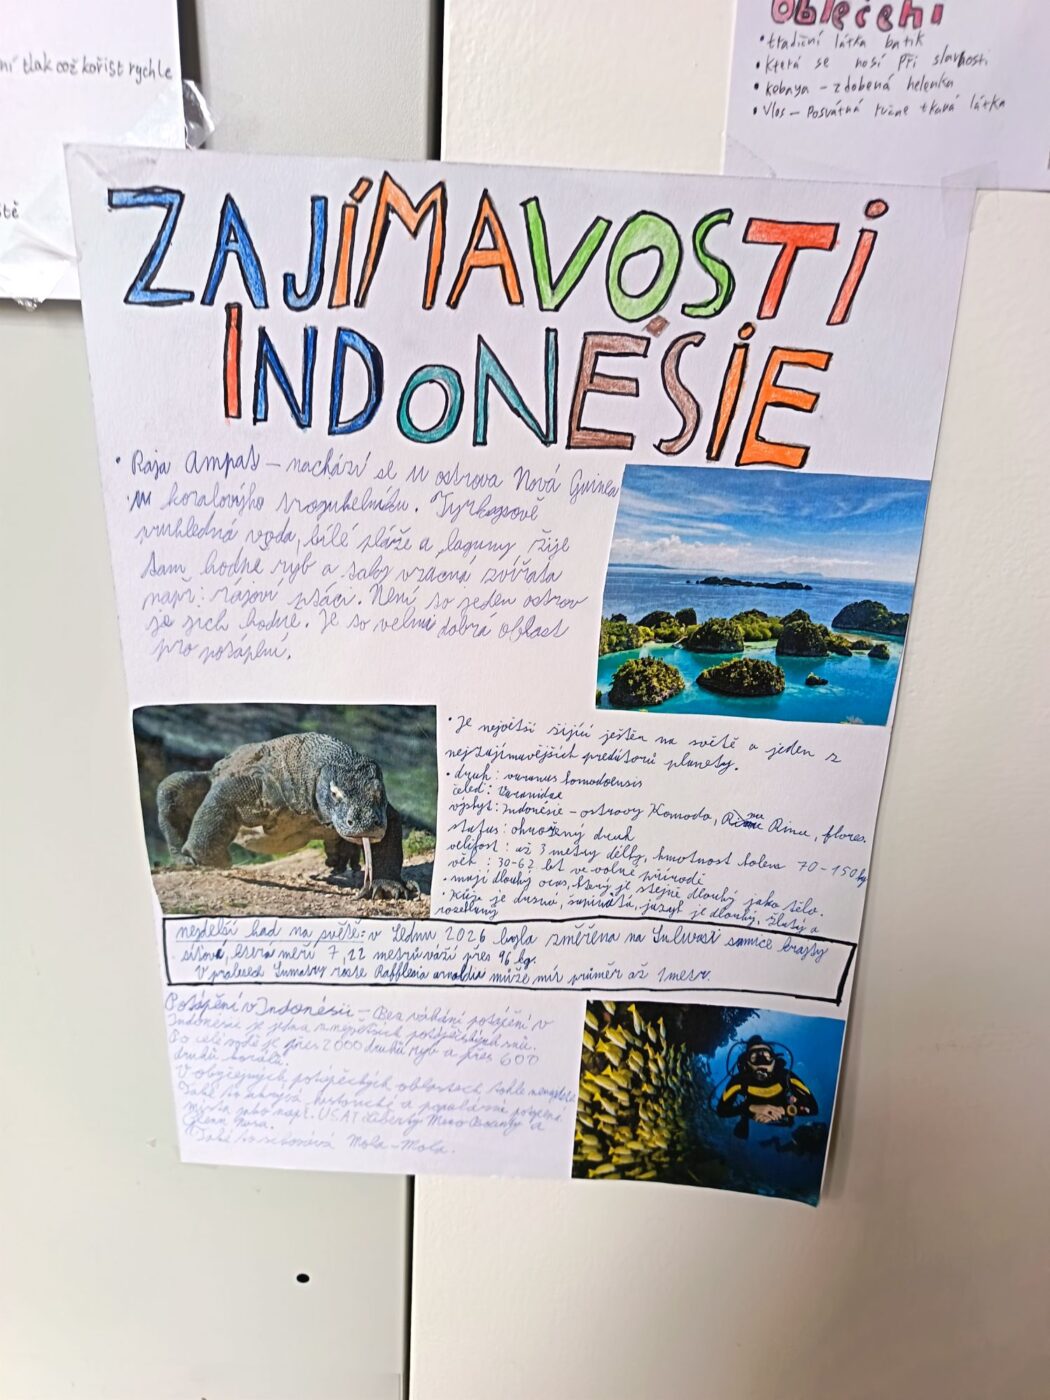 ní tlak což kořist rychle
ště
Oblečení
• tradiční látka batik
• která se nosí při slavnosti
• kebaya – zdobená halenka
• Vlos – Posvátná ručne tkaná látka
ZAJÍMAVOSTI
INDONÉSIE
• Raja Ampat – nachází se u ostrova Nová Guinea
v koralového trojuhelníku. Tyrkysově
průhledná voda, bílé pláže a laguny žije
tam hodne ryb a taky vzacná zvířata
např: rájoví ptáci. Není to jeden ostrov
je jich hodně. Je to velmi dobrá oblast
pro potápění.
• Je největší žijící ještěr na světě a jeden z
nejzajímavějších predátorů planety.
• druh: varanus komodoensis
čeleď: Varanidae
výskyt: Indonésie – ostrovy Komodo, Rinca, flores.
status: ohrožený druh
velikost: až 3 metry délky, hmotnost kolem 70–150 kg
věk: 30–62 let ve volné přírodě
• mají dlouhý ocas, který je stejně dlouhý jako tělo.
• Kůže je drsná, šupinatá, jazyk je dlouhý, žlutý a
rozeklaný
nejdelší had na světě: v lednu 2026 byla změřena na Sulawesi samice krajty
síťové, která měří 7,22 metrů váží přes 96 kg.
V pralese Sumatry roste Rafflesia arnoldii může mít průměr až 1 metr.
Potápění v Indonésii – Bez váhání potápění v
Indonésii je jedna z největších potápěčských snů.
Po celé vodě je přes 2000 druhů ryb a přes 600
druhů korálů.
V obyčejných potápěckých oblastech tohle nenajdete
Také to ukrývá historické a populární potopené
místa jako např. USAT Liberty
Glenn Nusa.
Také to schovává Mola–Mola.